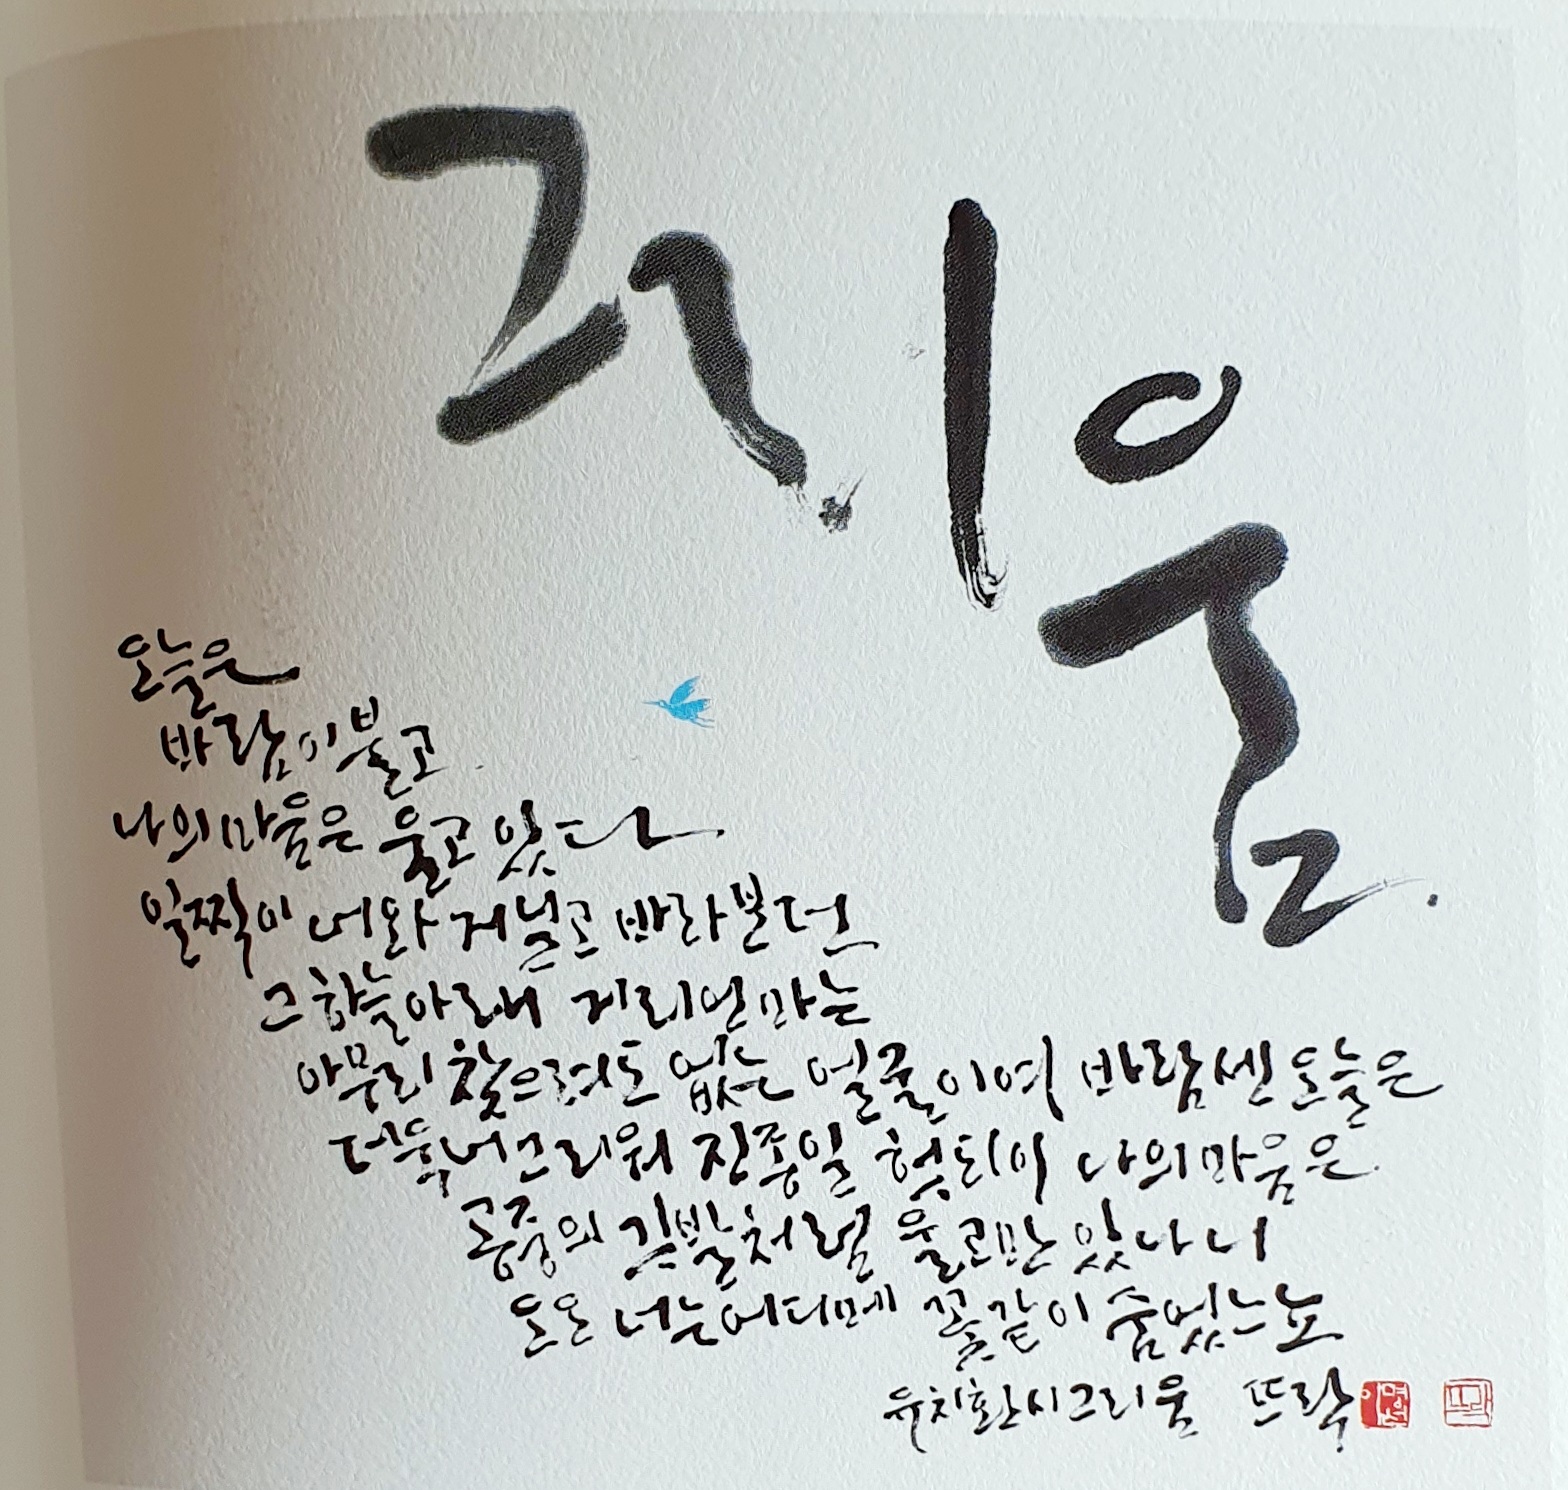 그리움
오늘은
바람이 불고
나의 마음은 울고 있다
일찍이 너와 거닐고 바라보던
그 하늘 아래 거리언마는
아무리 찾으려도 없는 얼굴이여 바람 센 오늘은
더욱 너 그리워 진종일 헛되이 나의 마음은
공중의 깃발처럼 울고만 있나니
오오 너는 어디메 꽃같이 숨었느뇨
유치환 시 그리움 뜨락